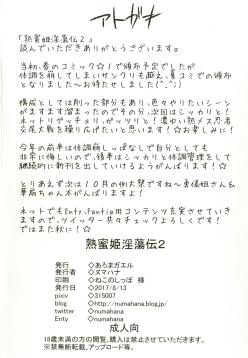 アトガキ
「熟蜜姫淫蕩伝2」
読んでいただきありがとうございます。
当初、春のコミック☆1で頒布予定でしたが
体調を崩してしまいサンクリも越え、夏コミでの頒布
となりました〜お待たせしました(^_^;)
構成としては削った部分もあり、色々やりたいシーン
がまだまだ溜まったのでその分、次回はシッカリと
ネットリグッチョリ、ガッツリと！濃ゆい熟メス忍者
交尾大戦を繰り広げたいと思います！☆お楽しみに！
今年の前半は体調崩しっぱなしで自分としても
非常に悔しいので、後半はシッカリと体調管理をして
継続的に新刊を出していけるようがんばります！
とりあえず次は10月の例大祭ですね〜勇儀姐さん＆
華扇ちゃん本がんばりますよ！
ネットでもEnty、Fantia用コンテンツ充実させていき
ますので、ツイッター共々チェックよろしくお願いします！
ではまた秋に！
熟蜜姫淫蕩伝2
発行 ◎あろまガエル
発行者 ◎ヌマハナ
印刷 ◎ねこのしっぽ 様
発行日 ◎2017/8/13
pixiv ◎315007
blog ◎http://numahana.blog.jp/
twitter ◎numahana
Enty ◎numahana
成人向
18歳未満の方の閲覧、購入は禁止させていただきます。
※禁無断転載、アップロード等。